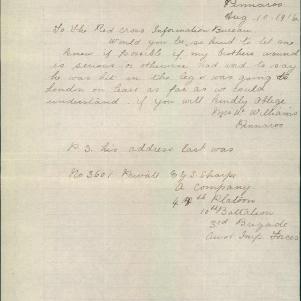 Pinnaroo
Aug. 10. 1916
To the Red Cross Information Bureau
Would you be so kind to let me
know if possible if my brothers wound
is serious or otherwise had word to say
he was hit in the leg & was going to
london on leave as far as we could
understand. if you will kindly oblige
Mrs W Williams
Pinnaroo
P.S. his address last was
No 3601 Private E J S Sharpe
A Company
4th Platoon
10th Battalion
3rd Brigade
Aust Imp. Forces